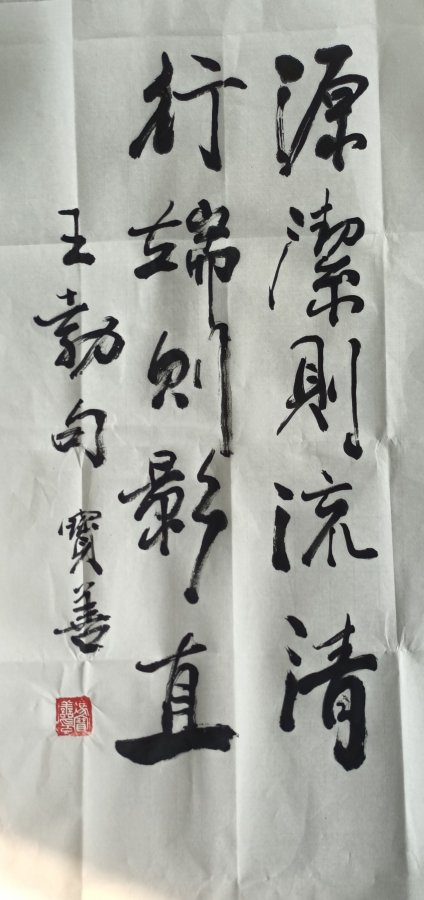 源潔則流清
行端則影直
王勃句 寶善